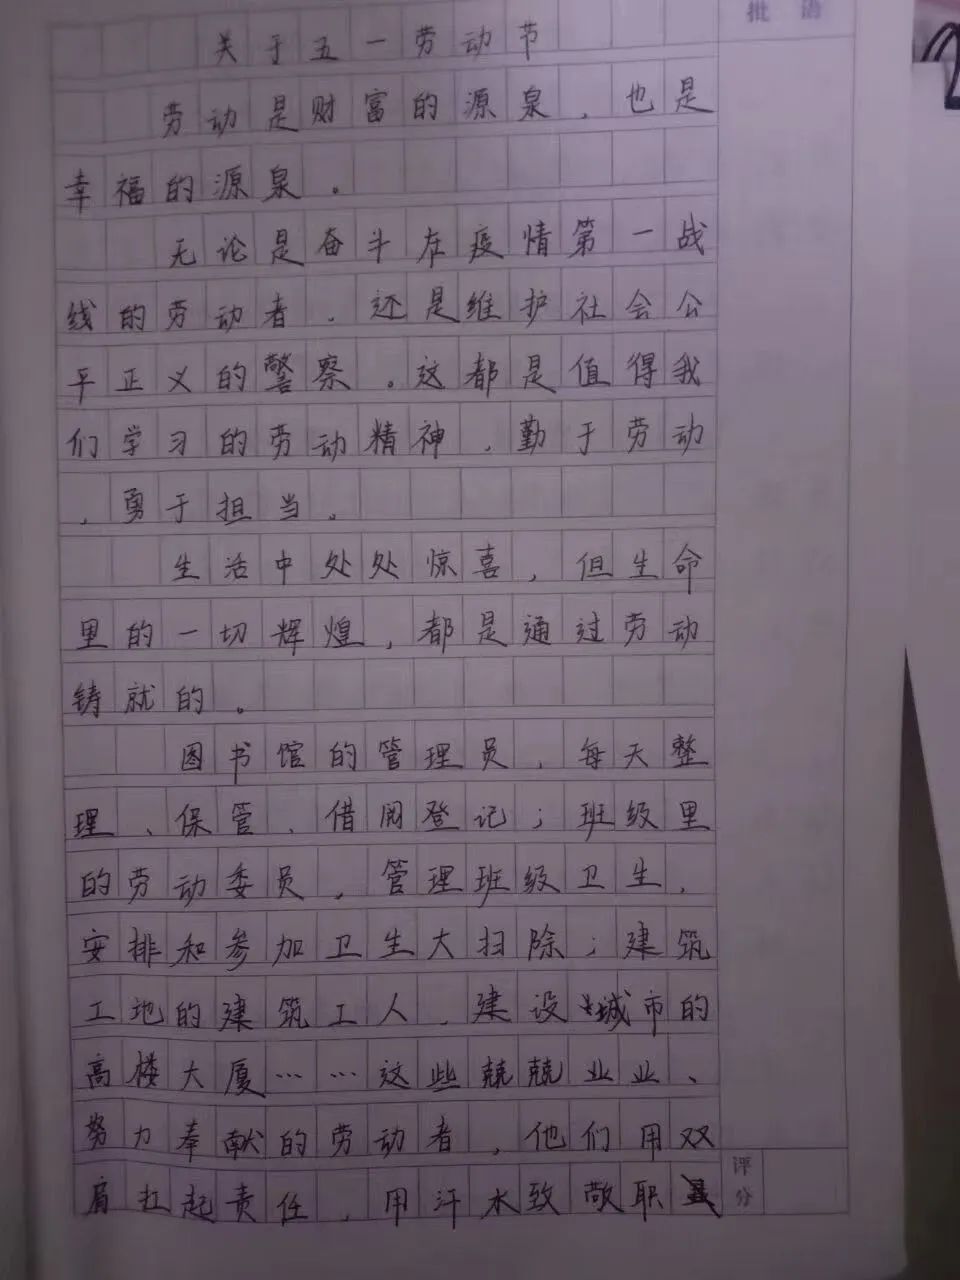 批语
关于五一劳动节
劳动是财富的源泉，也是
幸福的源泉。
无论是奋斗在疫情第一战
线的劳动者，还是维护社会公
平正义的警察。这都是值得我
们学习的劳动精神，勤于劳动
，勇于担当。
生活中处处惊喜，但生命
里的一切辉煌，都是通过劳动
铸就的。
图书馆的管理员，每天整
理、保管、借阅登记；班级里
的劳动委员，管理班级卫生，
安排和参加卫生大扫除；建筑
工地的建筑工人，建设城市的
高楼大厦……这些兢兢业业、
努力奉献的劳动者，他们用双
肩扛起责任，用汗水致敬职
评分